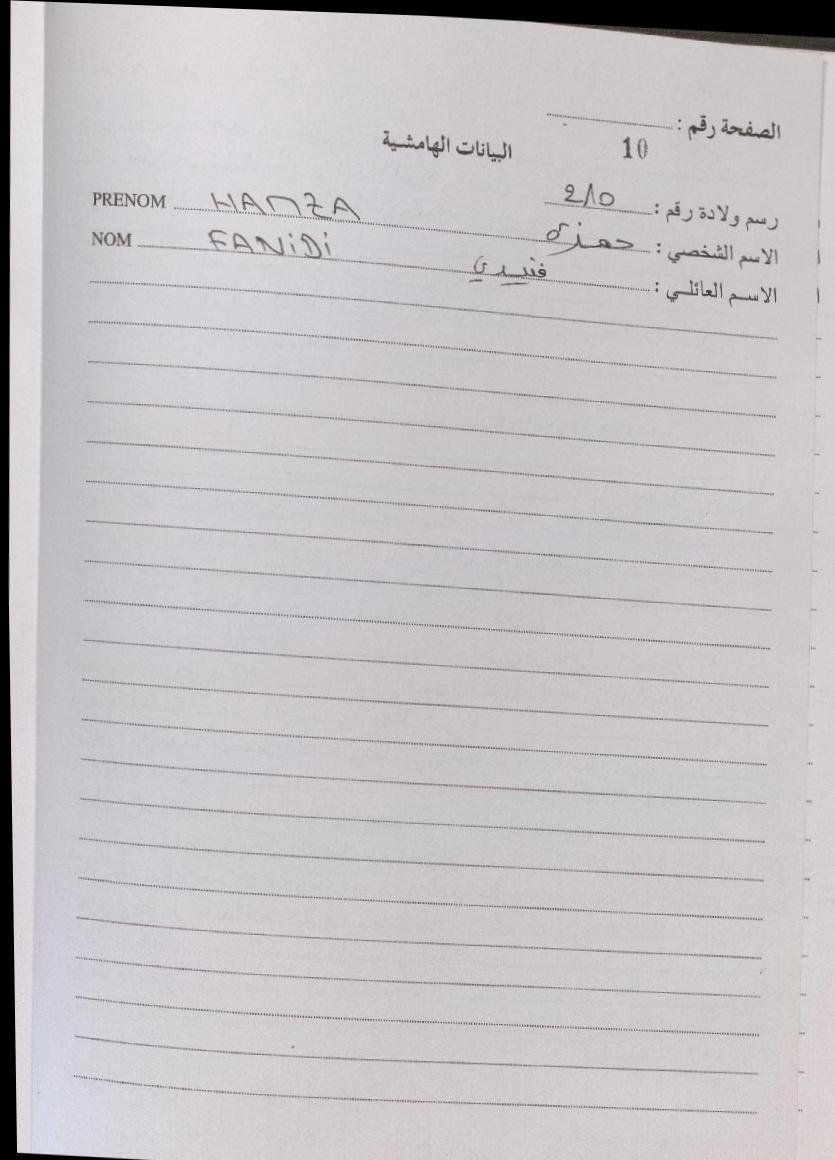 الصفحة رقم :
10
البيانات الهامشية
رسم ولادة رقم : 210
PRENOM HAMZA
الاسم الشخصي : حمزة
NOM FANiDi
الاسم العائلي : فنيدي